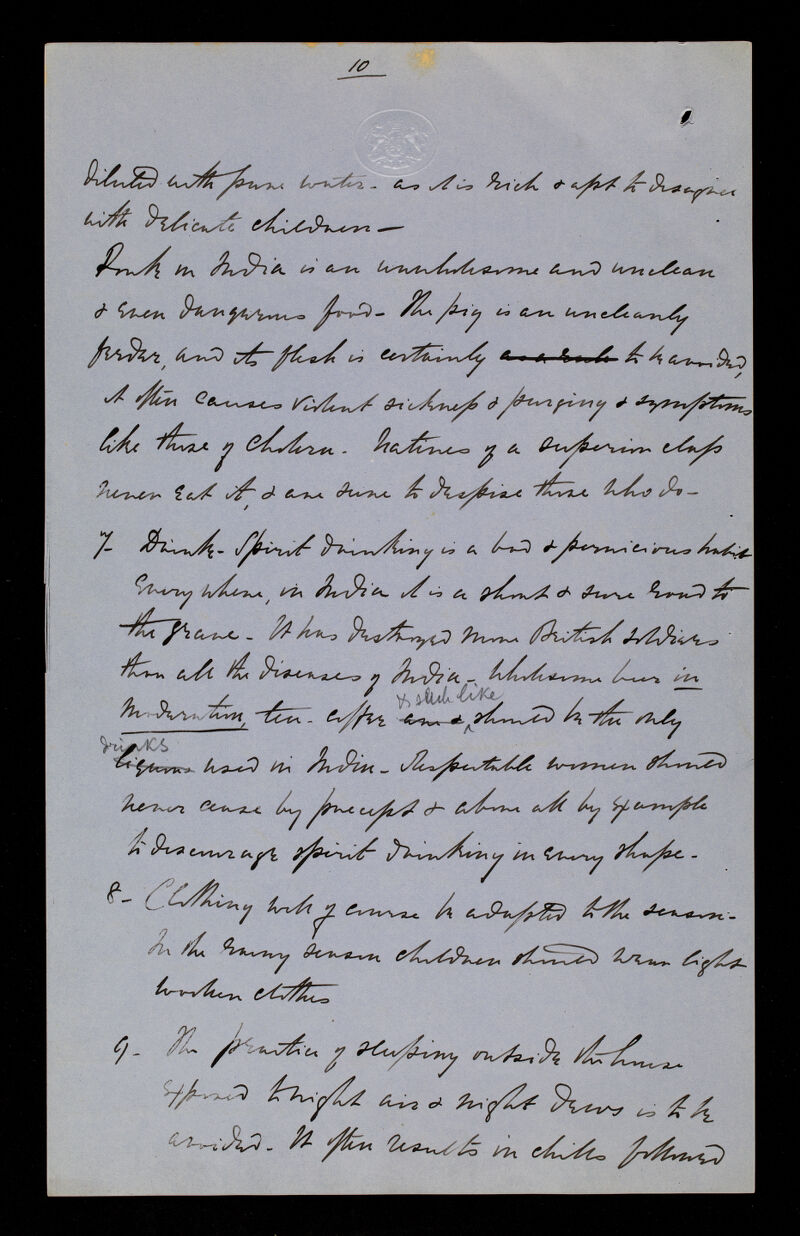 10
diluted with pure water - as it is rich & apt to disagree
with delicate children -
Pork in India is an unwholesome and unclean
& even dangerous food - The pig is an uncleanly
feeder, and its flesh is certainly as a rule to be avoided,
it often causes violent sickness & purging & symptoms
like those of Cholera - Natives of a superior class
never eat it, & are sure to despise those who do -
7 - Drink - Spirit drinking is a bad & pernicious habit
Everywhere, in India it is a short & sure road to
the grave - It has destroyed more British soldiers
than all the diseases of India - Wholesome beer in
& such like
Moderation, tea - coffee and & should be the only
drinks
liquors used in India - Respectable women should
never cease by precept & above all by Example
to discourage spirit drinking in every shape -
8 - Clothing will of course be adapted to the season -
In the rainy season children should wear light
woolen clothes
9 - The practice of sleeping outside the house
exposed to night air & night dews is to be
avoided - It often results in chills followed